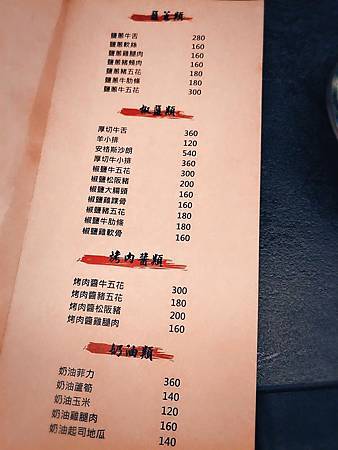 鹽蔥類
鹽蔥牛舌 280
鹽蔥軟絲 160
鹽蔥雞腿肉 160
鹽蔥豬頰肉 160
鹽蔥豬五花 180
鹽蔥牛肋條 180
鹽蔥牛五花 300
椒鹽類
厚切牛舌 360
羊小排 120
安格斯沙朗 540
厚切牛小排 360
椒鹽牛五花 300
椒鹽松阪豬 200
椒鹽大腸頭 160
椒鹽雞踝骨 160
椒鹽豬五花 180
椒鹽牛肋條 180
椒鹽雞軟骨 160
烤肉醬類
烤肉醬牛五花 300
烤肉醬豬五花 180
烤肉醬松阪豬 200
烤肉醬雞腿肉 160
奶油類
奶油菲力 360
奶油蘆筍 140
奶油玉米 120
奶油雞腿肉 160
奶油起司地瓜 140